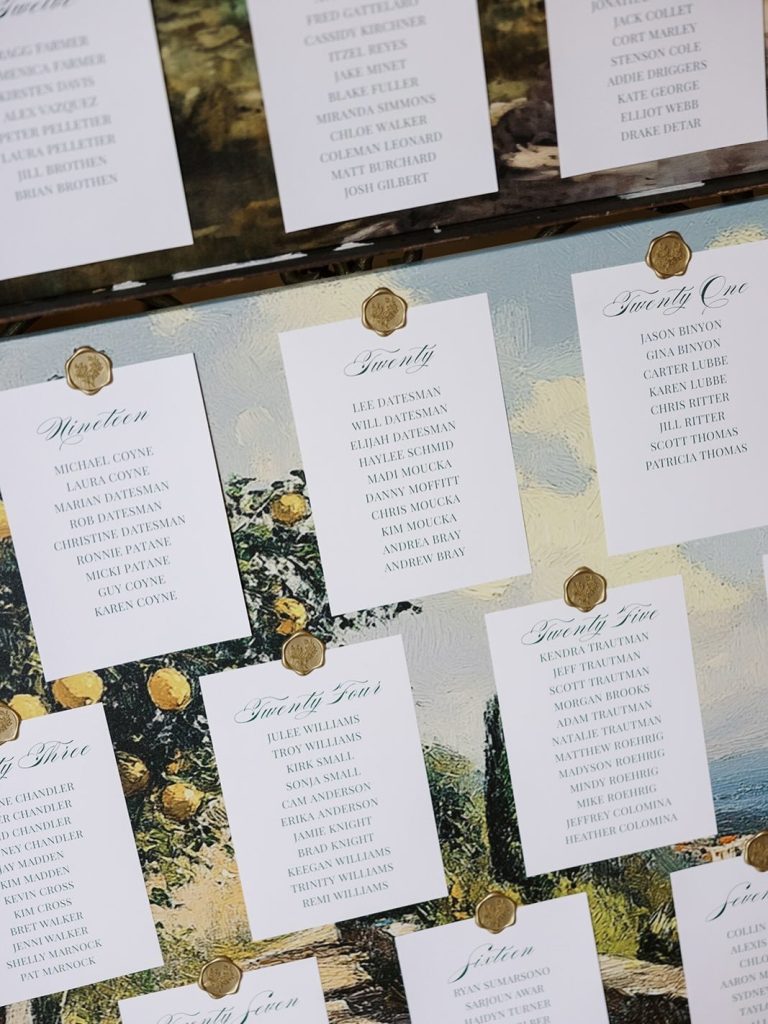 Twelve
FARMER
FARMER
KIRSTEN DAVIS
ALEX VAZQUEZ
PETER PELLETIER
LAURA PELLETIER
JILL BROTHEN
BRIAN BROTHEN
FRED GATTELARO
CASSIDY KIRCHNER
ITZEL REYES
JAKE MINET
BLAKE FULLER
MIRANDA SIMMONS
CHLOE WALKER
COLEMAN LEONARD
MATT BURCHARD
JOSH GILBERT
JACK COLLET
CORT MARLEY
STENSON COLE
ADDIE DRIGGERS
KATE GEORGE
ELLIOT WEBB
DRAKE DETAR
Nineteen
MICHAEL COYNE
LAURA COYNE
MARIAN DATESMAN
ROB DATESMAN
CHRISTINE DATESMAN
RONNIE PATANE
MICKI PATANE
GUY COYNE
KAREN COYNE
Twenty
LEE DATESMAN
WILL DATESMAN
ELIJAH DATESMAN
HAYLEE SCHMID
MADI MOUCKA
DANNY MOFFITT
CHRIS MOUCKA
KIM MOUCKA
ANDREA BRAY
ANDREW BRAY
Twenty One
JASON BINYON
GINA BINYON
CARTER LUBBE
KAREN LUBBE
CHRIS RITTER
JILL RITTER
SCOTT THOMAS
PATRICIA THOMAS
Three
CHANDLER
CHANDLER
CHANDLER
CHANDLER
JAY MADDEN
KIM MADDEN
KEVIN CROSS
KIM CROSS
BRET WALKER
JENNI WALKER
SHELLY MARNOCK
PAT MARNOCK
Twenty Four
JULEE WILLIAMS
TROY WILLIAMS
KIRK SMALL
SONJA SMALL
CAM ANDERSON
ERIKA ANDERSON
JAMIE KNIGHT
BRAD KNIGHT
KEEGAN WILLIAMS
TRINITY WILLIAMS
REMI WILLIAMS
Twenty Five
KENDRA TRAUTMAN
JEFF TRAUTMAN
SCOTT TRAUTMAN
MORGAN BROOKS
ADAM TRAUTMAN
NATALIE TRAUTMAN
MATTHEW ROEHRIG
MADYSON ROEHRIG
MINDY ROEHRIG
MIKE ROEHRIG
JEFFREY COLOMINA
HEATHER COLOMINA
Twenty Seven
Sixteen
RYAN SUMARSONO
SARJOUN AWAR
HAIDYN TURNER
COLLIN
ALEXIS
AARON
SYDNEY